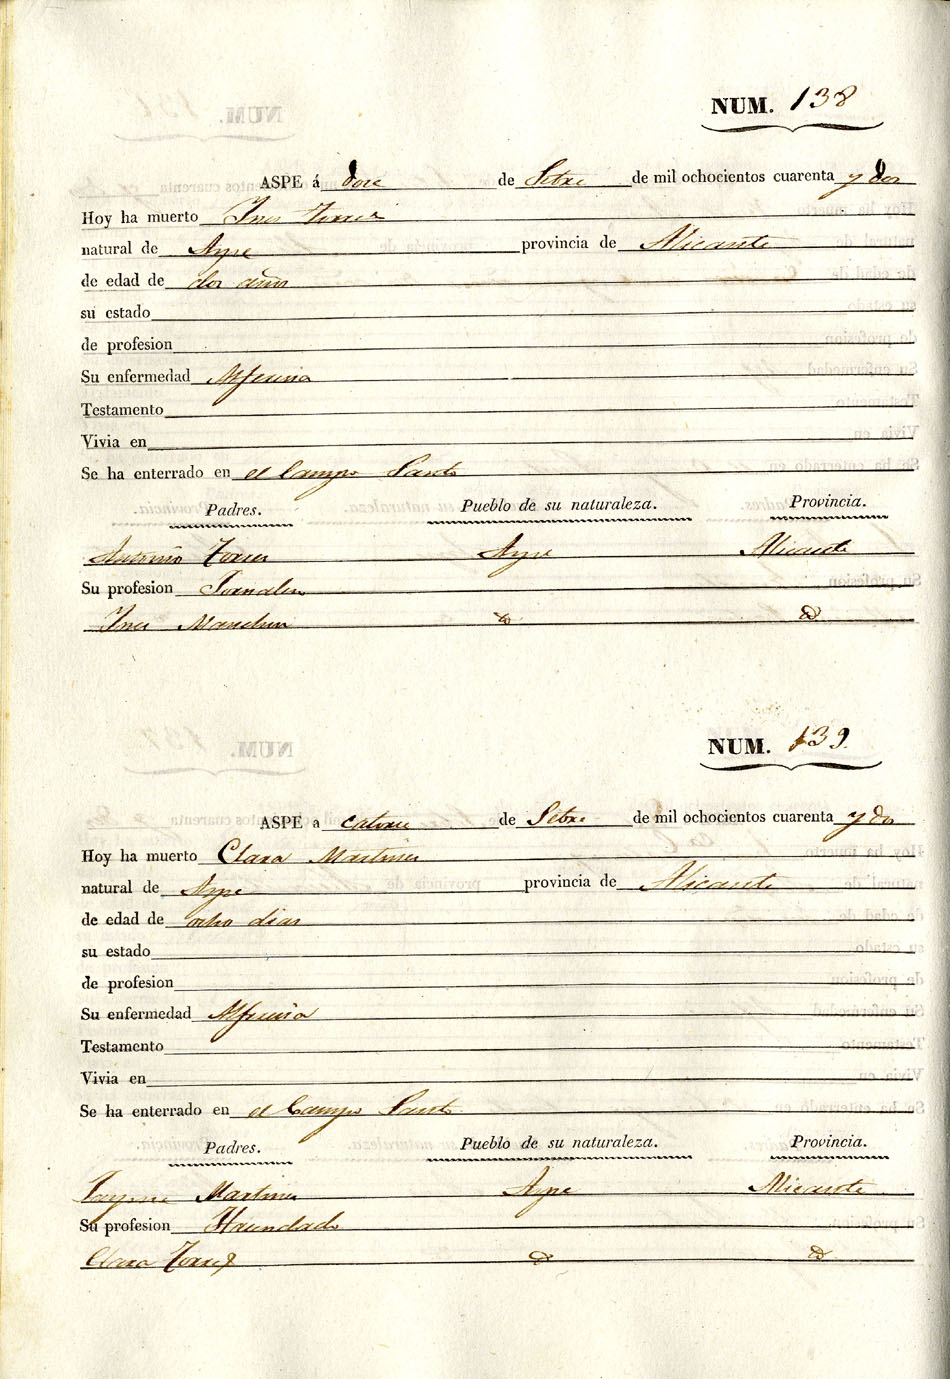 NUM. 138
ASPE á doce de Setre de mil ochocientos cuarenta y dos
Hoy ha muerto Ines Torres
natural de Aspe provincia de Alicante
de edad de dos años
su estado
de profesion
Su enfermedad Alferecia
Testamento
Vivia en
Se ha enterrado en el Campo Santo
Padres. Pueblo de su naturaleza. Provincia.
Antonio Torres Aspe Alicante
Su profesion Jornalero
Ines Id Id
NUM. 139.
ASPE a catorce de Setre de mil ochocientos cuarenta y dos
Hoy ha muerto Clara Martinez
natural de Aspe provincia de Alicante
de edad de ocho dias
su estado
de profesion
Su enfermedad Alferecia
Testamento
Vivia en
Se ha enterrado en el Campo Santo
Padres. Pueblo de su naturaleza. Provincia.
Jayme Martinez Aspe Alicante
Su profesion Hacendado
Clara Torres Id Id